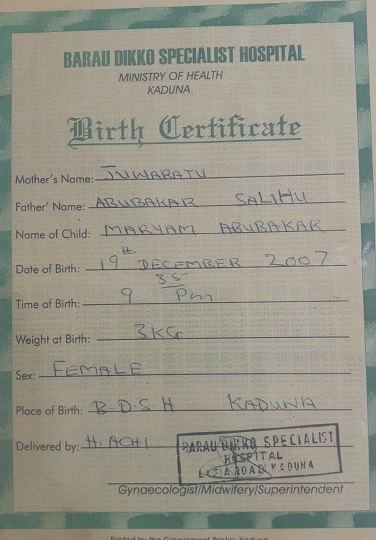 BARAU DIKKO SPECIALIST HOSPITAL
MINISTRY OF HEALTH
KADUNA.
Birth Certificate
Mother's Name: JUWARATU
Father' Name: ABUBAKAR SALIHU
Name of Child: MARYAM ABUBAKAR
Date of Birth: 19th DECEMBER 2007
Time of Birth: 9 35 Pm
Weight at Birth: 3KG
Sex: FEMALE
Place of Birth: B-D-S-H KADUNA
Delivered by: H. ACHI
BARAU DIKKO SPECIALIST
HOSPITAL
ROAD KADUNA
Gynaecologist/Midwifery/Superintendent
Printed by the Government Printer, Kaduna